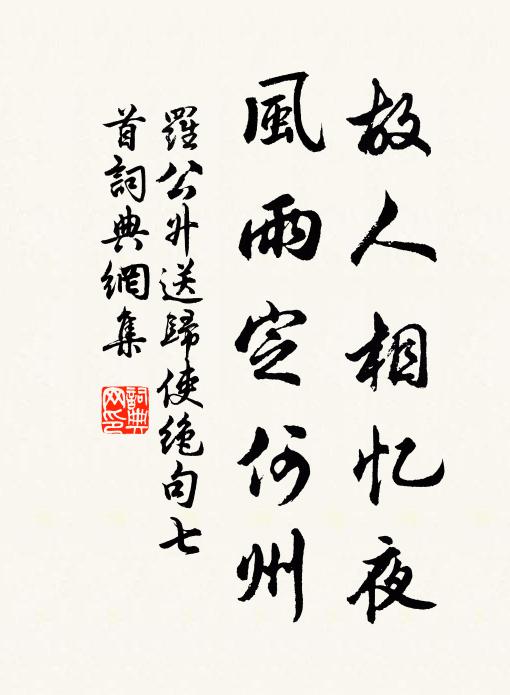 故人相忆夜
風雨定何州
羅公升送歸使绝句七
首詞典網集
詞典
网印